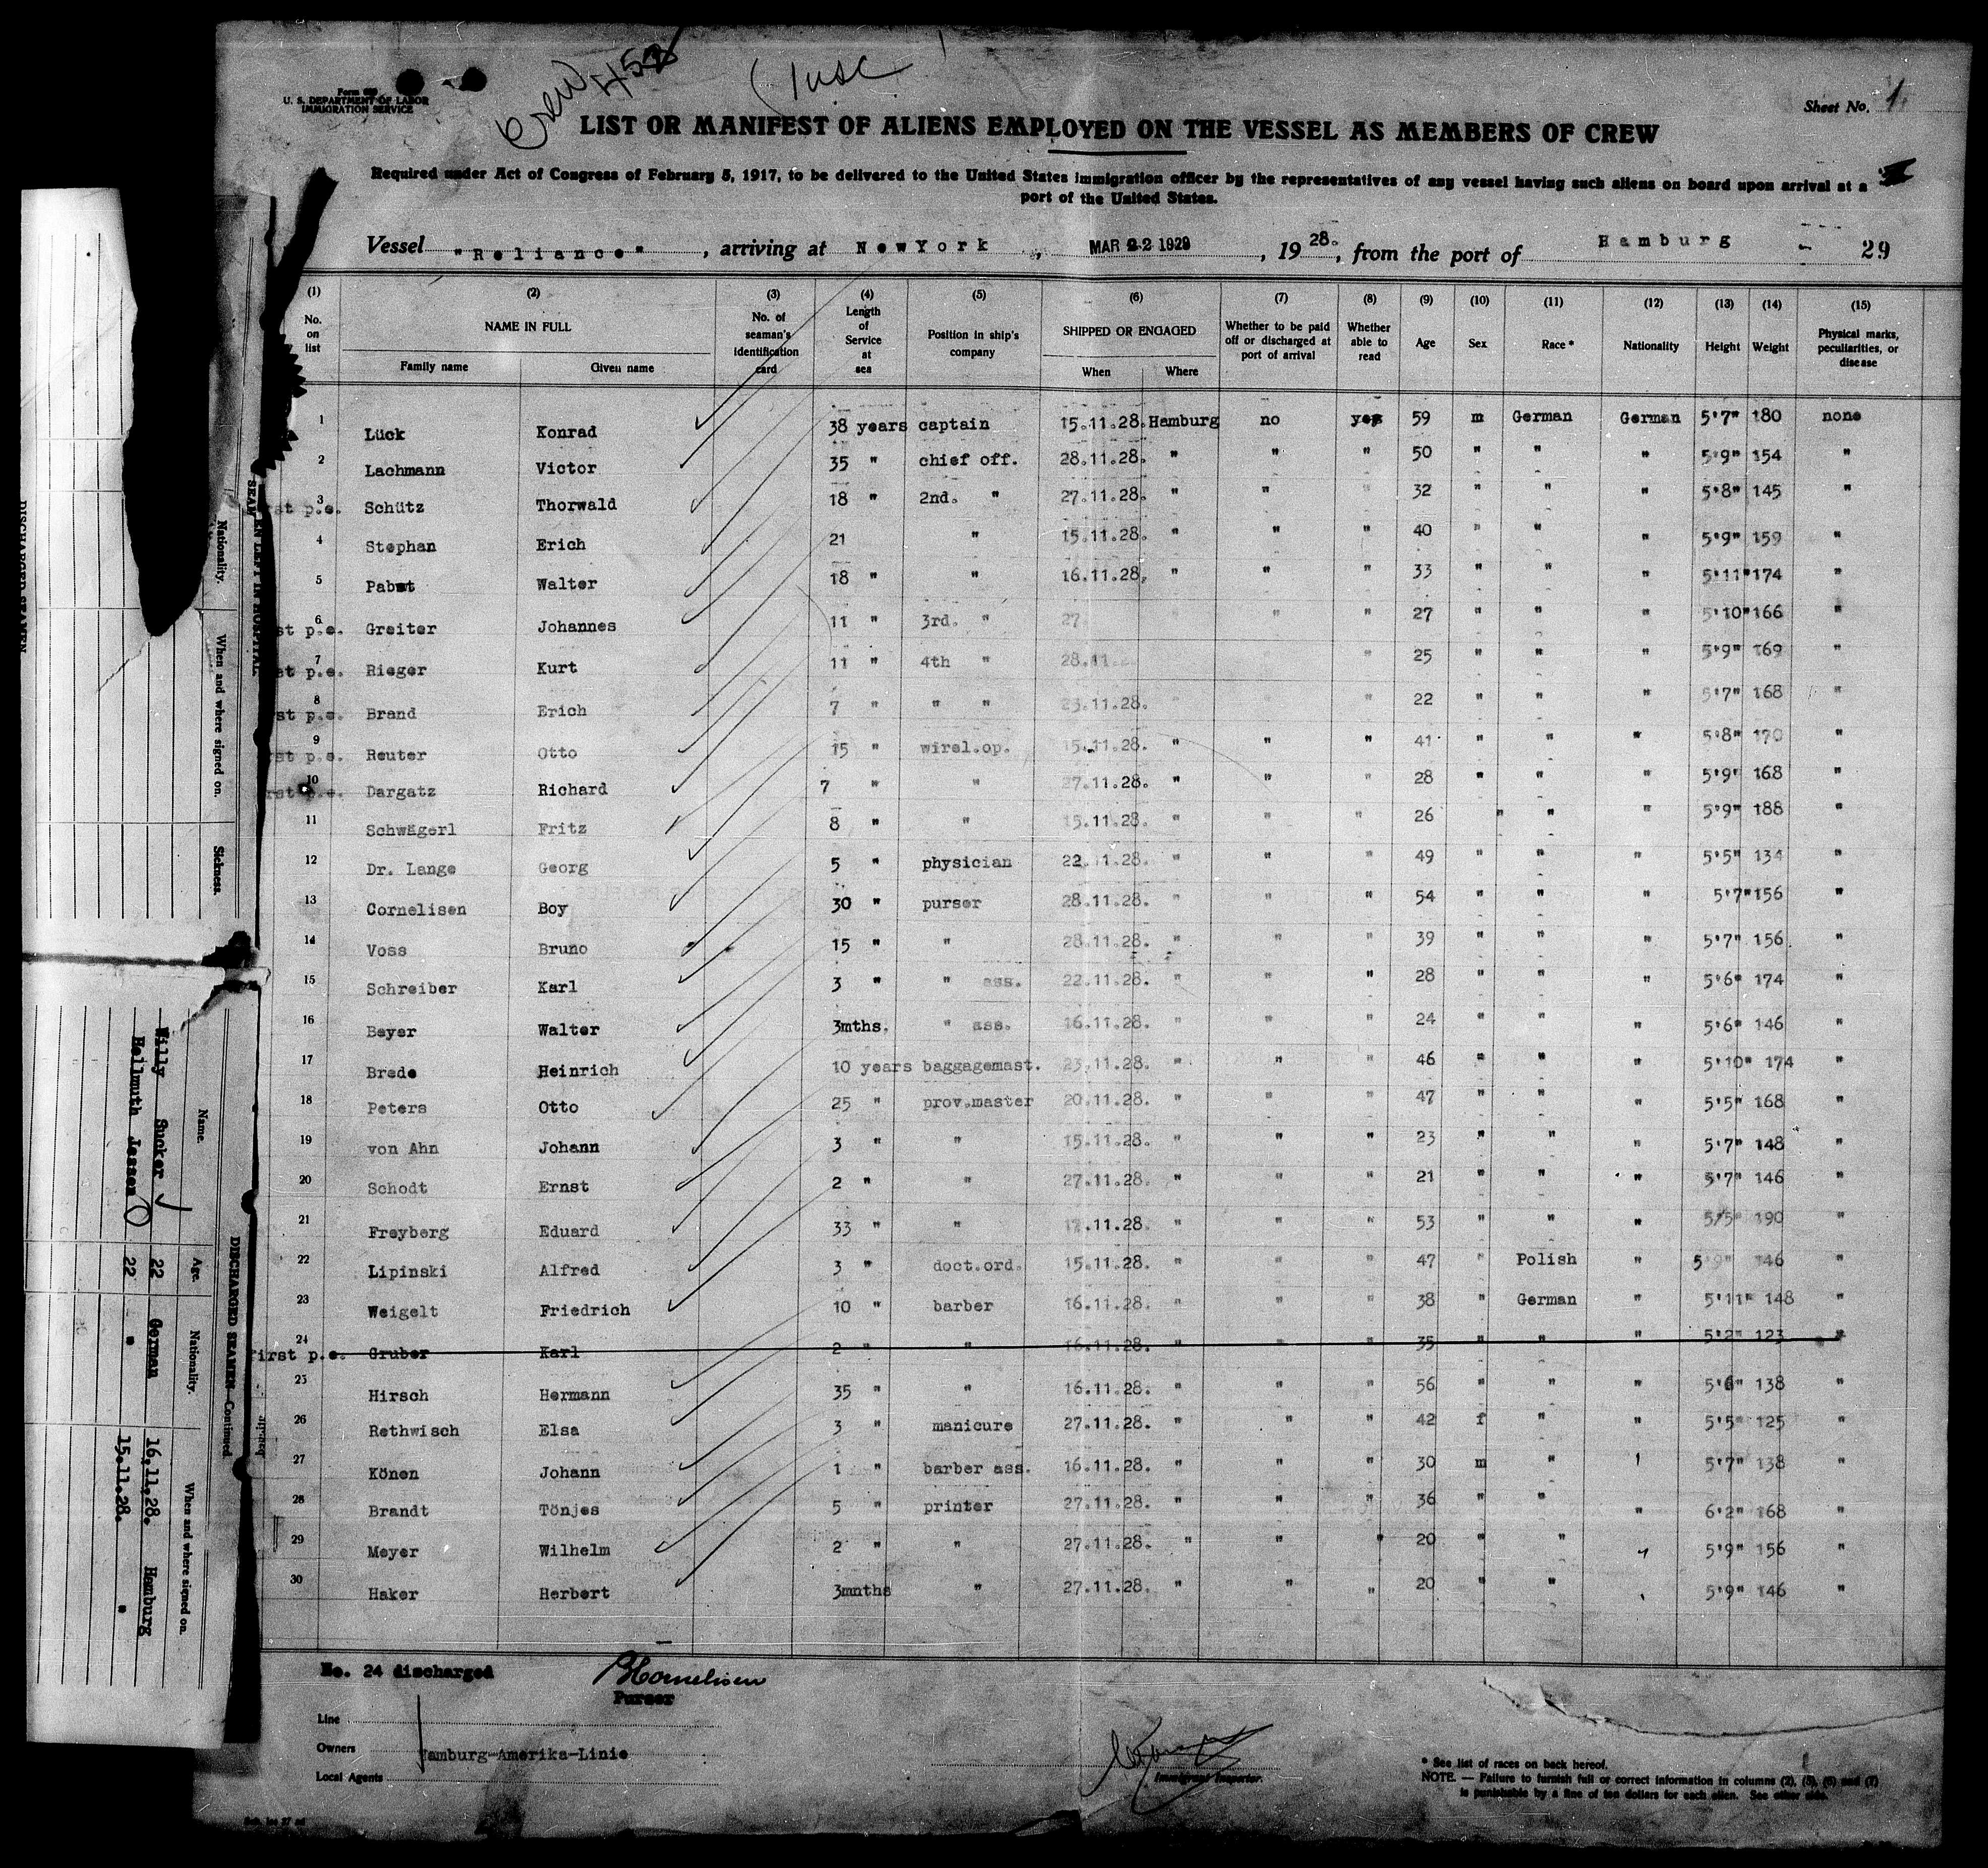 Crew 452
Form 689
U. S. DEPARTMENT OF LABOR
IMMIGRATION SERVICE
Sheet No. 1.
LIST OR MANIFEST OF ALIENS EMPLOYED ON THE VESSEL AS MEMBERS OF CREW
Required under Act of Congress of February 5, 1917, to be delivered to the United States immigration officer by the representatives of any vessel having such aliens on board upon arrival at a
port of the United States.
Vessel "Reliance", arriving at NewYork, MAR 22 1929, 1928., from the port of Hamburg - 29
(1) No. on list (2) NAME IN FULL Family name Given name (3) No. of seaman's identification card (4) Length of Service at sea (5) Position in ship's company (6) SHIPPED OR ENGAGED When Where (7) Whether to be paid off or discharged at port of arrival (8) Whether able to read (9) Age (10) Sex (11) Race* (12) Nationality (13) Height (14) Weight (15) Physical marks, peculiarities, or disease
1 Lück Konrad 38 years captain 15.11.28. Hamburg no yes 59 m German German 5'7" 180 none
2 Lachmann Victor 35 " chief off. 28.11.28. " " " 50 " " " 5'9" 154 "
3 st p.e. Schütz Thorwald 18 " 2nd. " 27.11.28. " " " 32 " " " 5'8" 145 "
4 Stephan Erich 21 " 15.11.28. " " " 40 " " " 5'9" 159 "
5 Pabst Walter 18 " " 16.11.28. " " " 33 " " " 5'11" 174 "
6 st p.e. Greiter Johannes 11 " 3rd. " 27 " " 27 " " " 5'10" 166 "
7 st p.e. Rieger Kurt 11 " 4th " 28.11 " 25 " " " 5'9" 169 "
8 st p.e. Brand Erich 7 " " " 23.11.28. " 22 " " " 5'7" 168 "
9 st p.e. Reuter Otto 15 " wirel.op. 15.11.28. " " " 41 " " " 5'8" 170 "
10 rst p.e. Dargatz Richard 7 " " 27.11.28. " " " 28 " " " 5'9" 168 "
11 Schwägerl Fritz 8 " " 15.11.28. " " " 26 " " " 5'9" 188 "
12 Dr. Lange Georg 5 " physician 22.11.28. " " " 49 " " " 5'5" 134 "
13 Cornelisen Boy 30 " purser 28.11.28. " " " 54 " " " 5'7" 156 "
14 Voss Bruno 15 " " 28.11.28. " " " 39 " " " 5'7" 156 "
15 Schreiber Karl 3 " " ass. 22.11.28. " " " 28 " " " 5'6" 174 "
16 Beyer Walter 3mths. " ass. 16.11.28. " " " 24 " " " 5'6" 146 "
17 Brede Heinrich 10 years baggagemast. 23.11.28. " " " 46 " " " 5'10" 174 "
18 Peters Otto 25 " prov.master 20.11.28. " " " 47 " " " 5'5" 168 "
19 von Ahn Johann 3 " " 15.11.28. " " " 23 " " " 5'7" 148 "
20 Schodt Ernst 2 " " 27.11.28. " " " 21 " " " 5'7" 146 "
21 Freyberg Eduard 33 " " 17.11.28. " " " 53 " " " 5'5" 190 "
22 Lipinski Alfred 3 " doct.ord. 15.11.28. " " " 47 " Polish " 5'9" 146 "
23 Weigelt Friedrich 10 " barber 16.11.28. " " " 38 " German " 5'11" 148 "
24 first p.e. Gruber Karl 2 " " 16.11.28. " " " 35 " " " 5'2" 123 "
25 Hirsch Hermann 35 " " 16.11.28. " " " 56 " " " 5'6" 138 "
26 Rethwisch Elsa 3 " manicure 27.11.28. " " " 42 f " " 5'5" 125 "
27 Könen Johann 1 " barber ass. 16.11.28. " " " 30 m " " 5'7" 138 "
28 Brandt Tönjes 5 " printer 27.11.28. " " " 36 " " " 6'2" 168 "
29 Meyer Wilhelm 2 " " 27.11.28. " " " 20 " " " 5'9" 156 "
30 Haker Herbert 3mnths " 27.11.28. " " " 20 " " 5'9" 146 "
No. 24 discharged
BHornelisen
Purser
Line
Owners Hamburg-Amerika-Linie
Local Agents
Immigrant Inspector.
* See list of races on back hereof.
NOTE. — Failure to furnish full or correct information in columns (2), (5), (6) and (7)
is punishable by a fine of ten dollars for each alien. See other side.
DISCHARGED SEAMEN
SEAMEN LEFT IN HOSPITAL
Nationality. When and where signed on. Sickness.
DISCHARGED SEAMEN—Continued
Name. Age. Nationality. When and where signed on.
Willy Sucker 22 German 16.11.28. Hamburg
Hellmuth Jessen 22 " 15.11.28. "